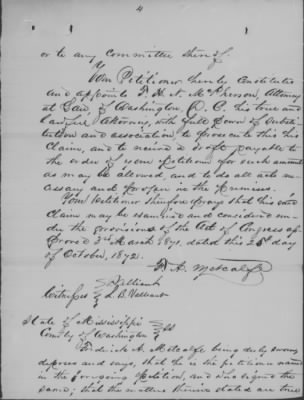 4
or to any Committee thereof.
Your Petitioner hereby Constitutes
and appoints J. H. N. McPherson, Attorney
at Law, of Washington, D. C. his true and
lawful Attorney, with full Power of Substi-
tution and association to prosecute this his
Claim, and to receive a draft payable to
the order of your petitioner for such amount
as may be allowed, and to do all acts ne-
cessary and proper in the premises.
Your Petitioner therefore prays that his said
Claim may be examined and considered un-
der the provisions of the Act of Congress ap-
proved 3rd March 1871, dated this 25 day
of October, 1872.
F. A. Metcalfe
Valliant
Witnesses L. B. Valliant
State of Mississippi
County of Washington SS
Frederick A. Metcalfe being duly sworn
deposes and says, that he is the petitioner named
in the foregoing petition, and who signed the
same; that the matters therein stated are true